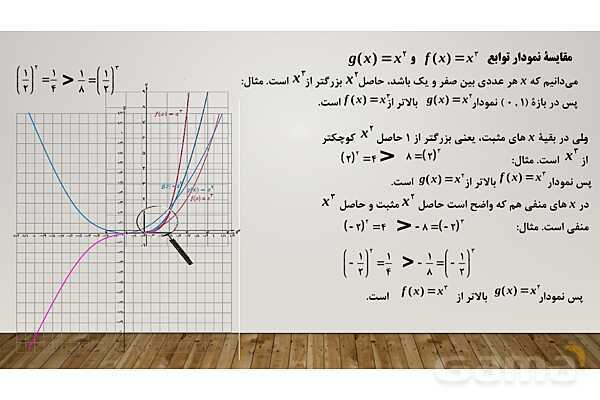 مقایسهٔ نمودار توابع f(x) = x³ و g(x) = x²
می‌دانیم که x هر عددی بین صفر و یک باشد، حاصل x² بزرگتر از x³ است. مثال:
(۱/۲)² = ۱/۴ > ۱/۸ = (۱/۲)³
پس در بازهٔ (۰ , ۱) نمودار g(x) = x² بالاتر از f(x) = x³ است.
ولی در بقیهٔ x های مثبت، یعنی بزرگتر از ۱ حاصل x² کوچکتر
از x³ است. مثال: (۲)² = ۴ > ۸ = (۲)³
پس نمودار f(x) = x³ بالاتر از g(x) = x² است.
در x های منفی هم که واضح است حاصل x² مثبت و حاصل x³
منفی است. مثال: (-۲)² = ۴ > -۸ = (-۲)³
(-۱/۲)² = ۱/۴ > -۱/۸ = (-۱/۲)³
پس نمودار g(x) = x² بالاتر از f(x) = x³ است.
f(x) = x³
g(x) = x²
f(x) = x³
gama